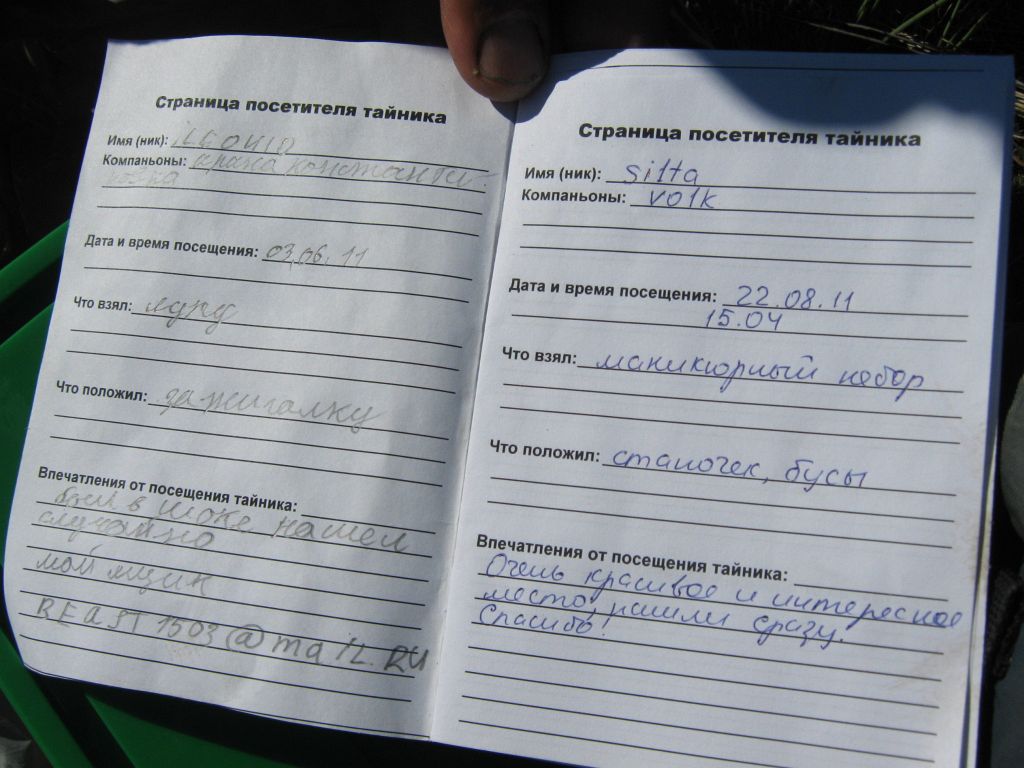 Страница посетителя тайника
Имя (ник):
Компаньоны:
Дата и время посещения: 03.06.11
Что взял:
Что положил: зажигалку
Впечатления от посещения тайника:
был в шоке нашел
случайно
мой ящик
REAST1503@maiL.RU
Страница посетителя тайника
Имя (ник): silta
Компаньоны: volk
Дата и время посещения: 22.08.11
15.04
Что взял: маникюрный набор
Что положил: станочек, бусы
Впечатления от посещения тайника:
Очень красивое и интересное
место, нашли сразу.
Спасибо!